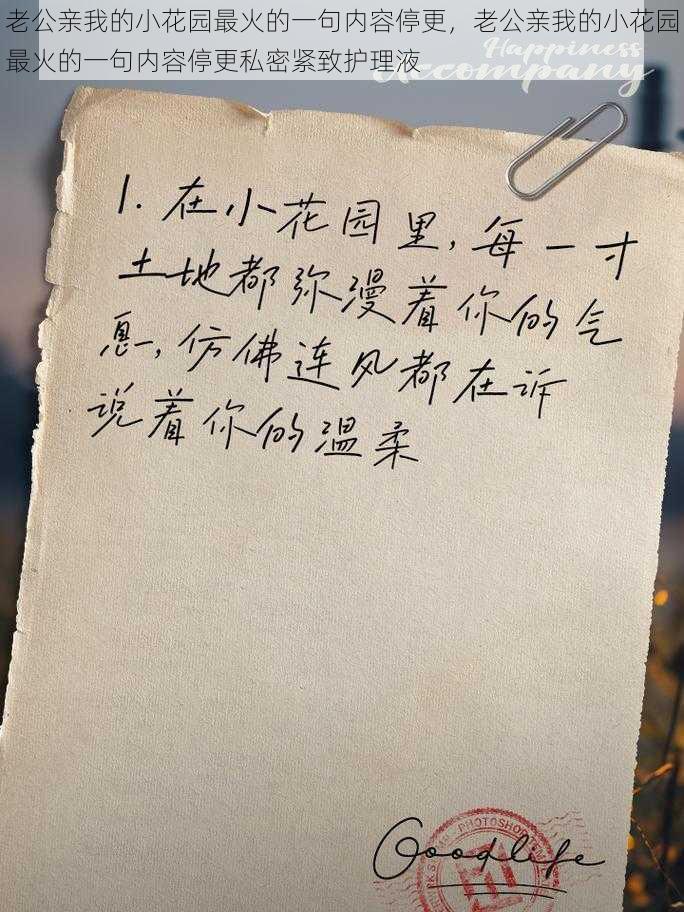 老公亲我的小花园最火的一句内容停更，老公亲我的小花园
最火的一句内容停更私密紧致护理液
Happiness
accompany
1. 在小花园里，每一寸
土地都弥漫着你的气
息，仿佛连风都在诉
说着你的温柔
PHOTOSHOP
Goodlife